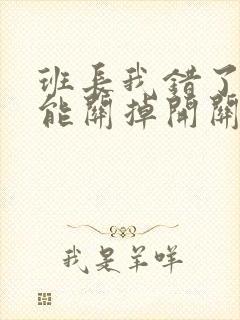 班長我錯了
能關掉開關
我是羊咩